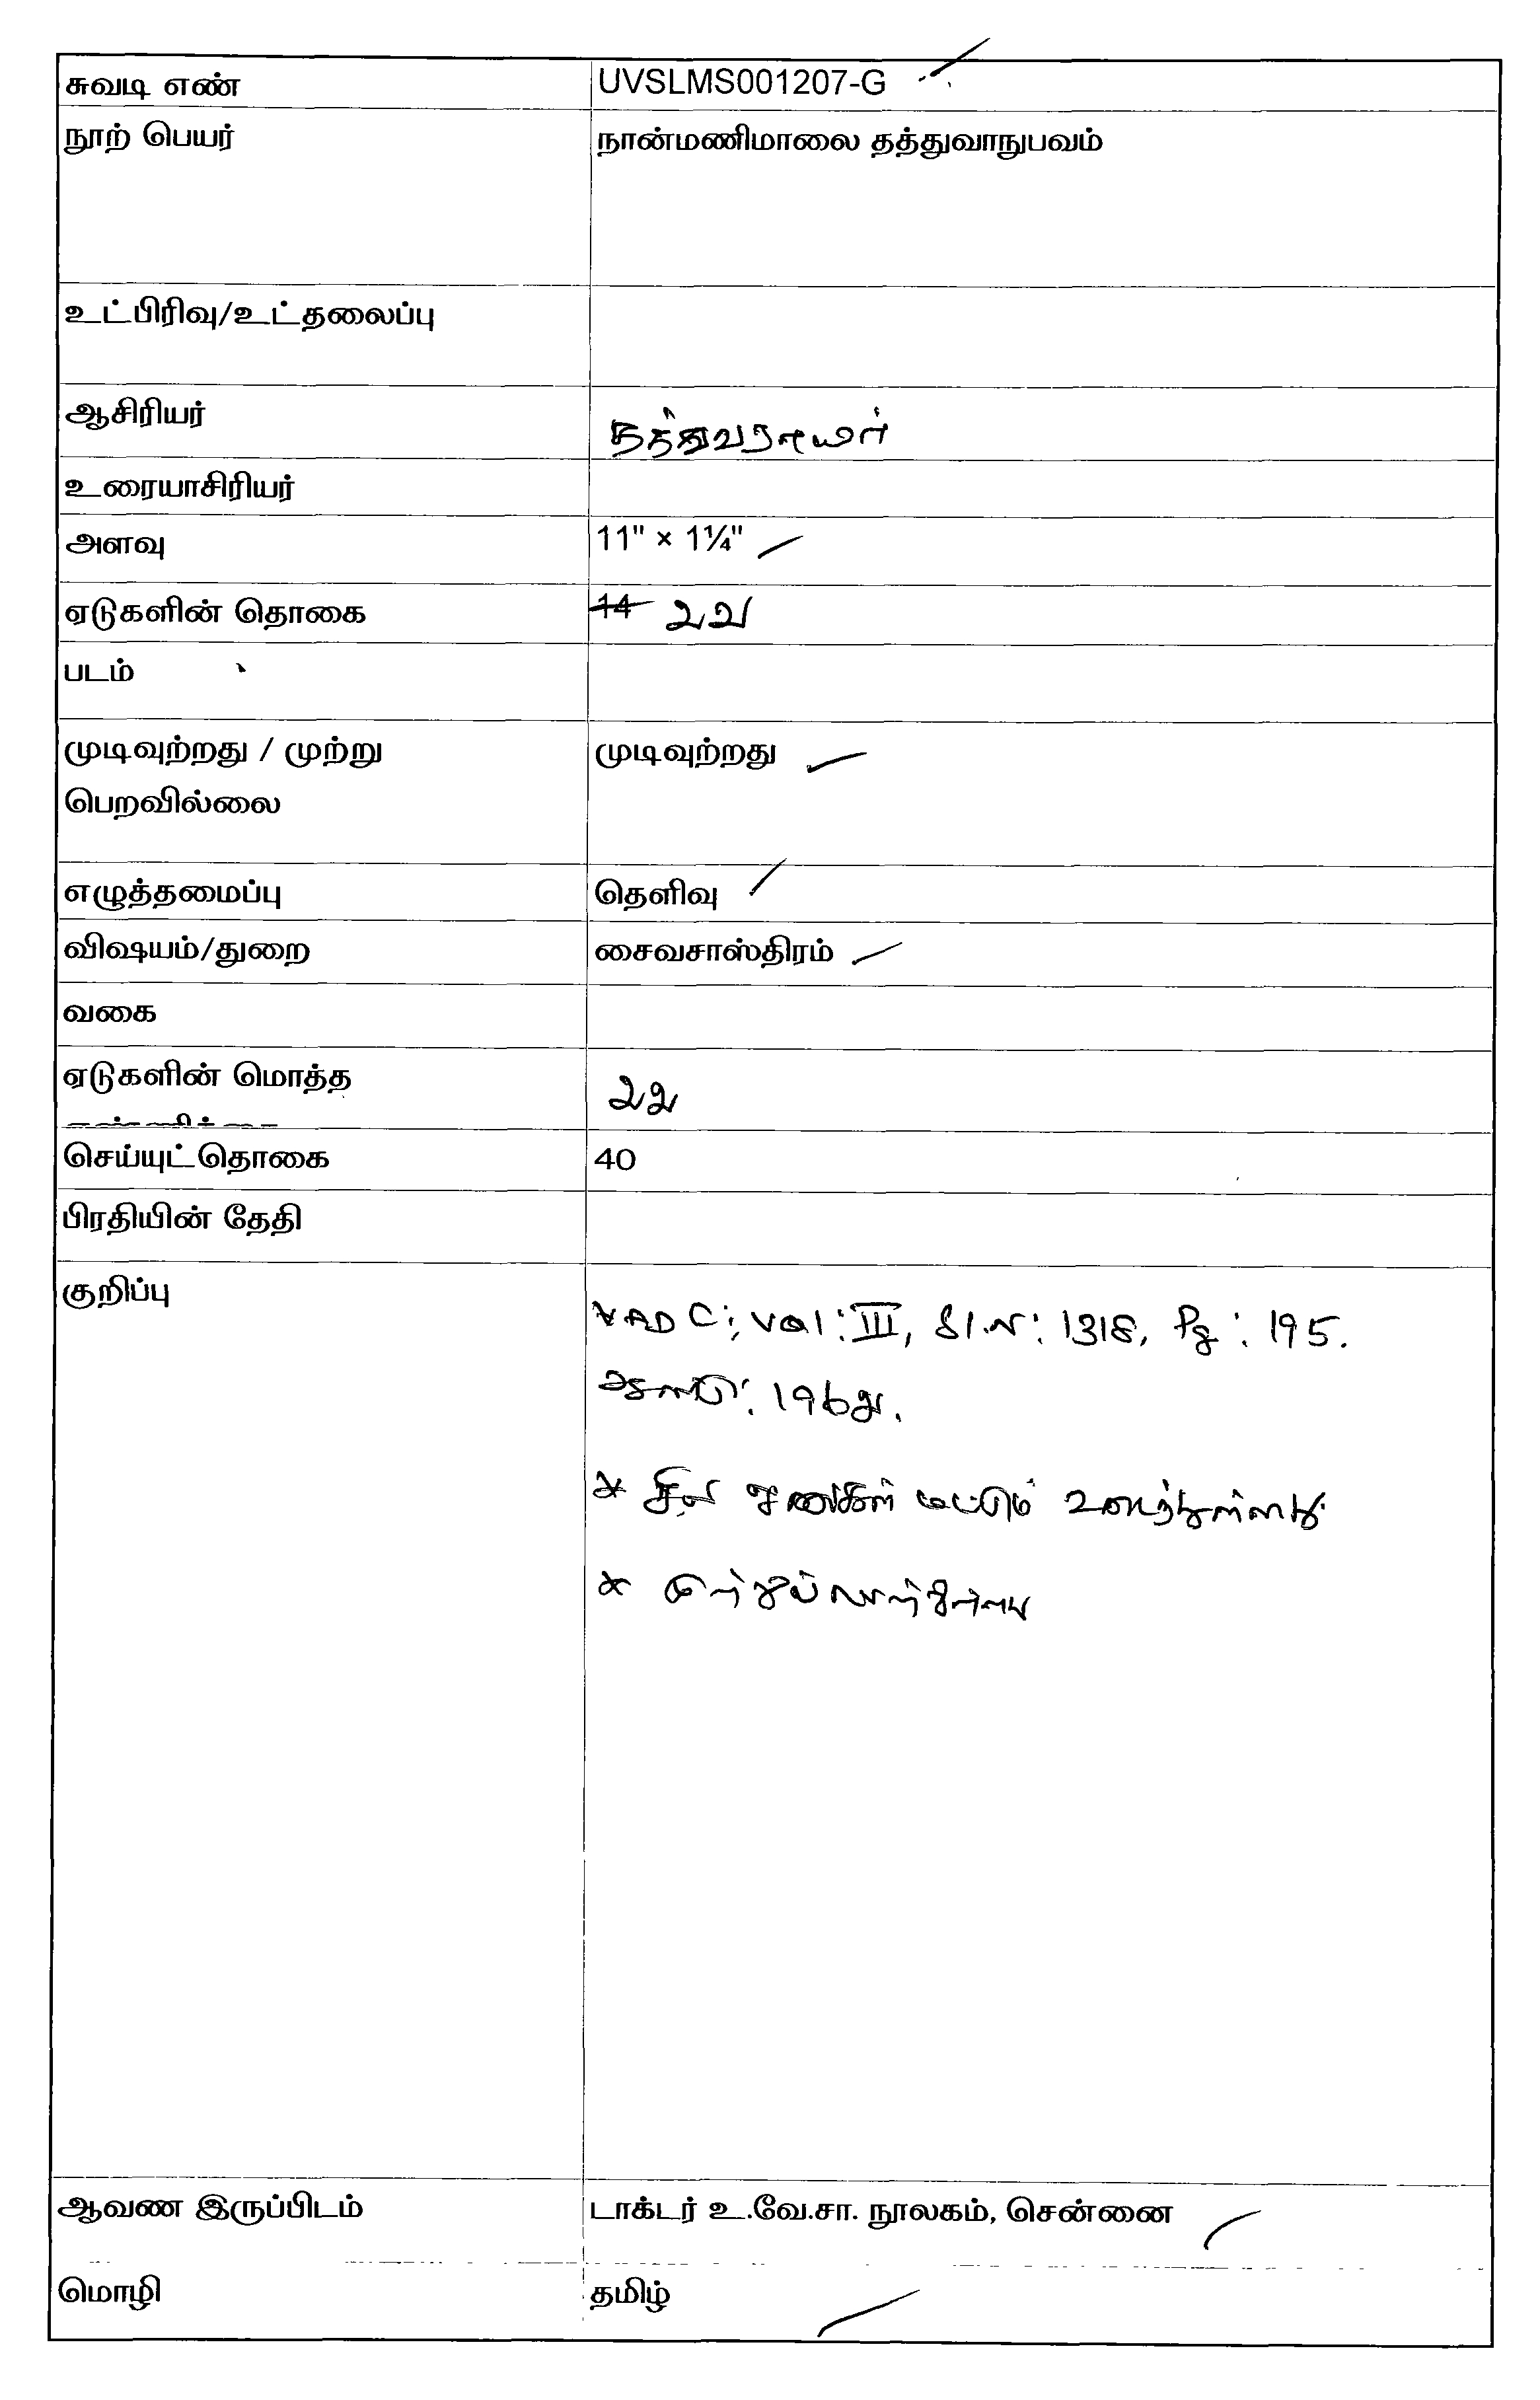 சுவடி எண் UVSLMS001207-G
நூற் பெயர் நான்மணிமாலை தத்துவாநுபவம்
உட்பிரிவு/உட்தலைப்பு
ஆசிரியர் தத்துவராயர்
உரையாசிரியர்
அளவு 11" × 1¼"
ஏடுகளின் தொகை 14 22
படம்
முடிவுற்றது / முற்று முடிவுற்றது
பெறவில்லை
எழுத்தமைப்பு தெளிவு
விஷயம்/துறை சைவசாஸ்திரம்
வகை
ஏடுகளின் மொத்த 22
செய்யுட்தொகை 40
பிரதியின் தேதி
குறிப்பு
Vol: III, Sl.N: 1318, Pg: 195.
ஆண்டு: 1962.
* சில ஏடுகள் மட்டும் உடைந்துள்ளது
*
ஆவண இருப்பிடம் டாக்டர் உ.வே.சா. நூலகம், சென்னை
மொழி தமிழ்